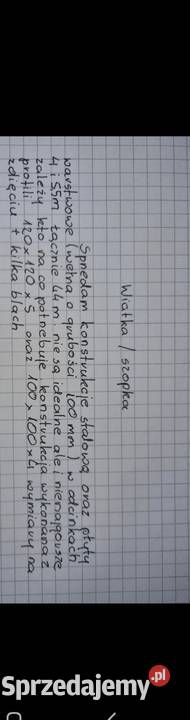 Wiatka / szopka
Sprzedam konstrukcję stalową oraz płyty
warstwowe (wełna o grubości 100 mm) w odcinkach
4 i 5,5m łącznie 44 m nie są idealne ale i nienajgorsze
zależy kto na co potrzebuje, konstrukcja wykonana z
profili 120x120x5 oraz 100x100x4 wymiary na
zdięciu + kilka blach
Sprzedajemy.pl